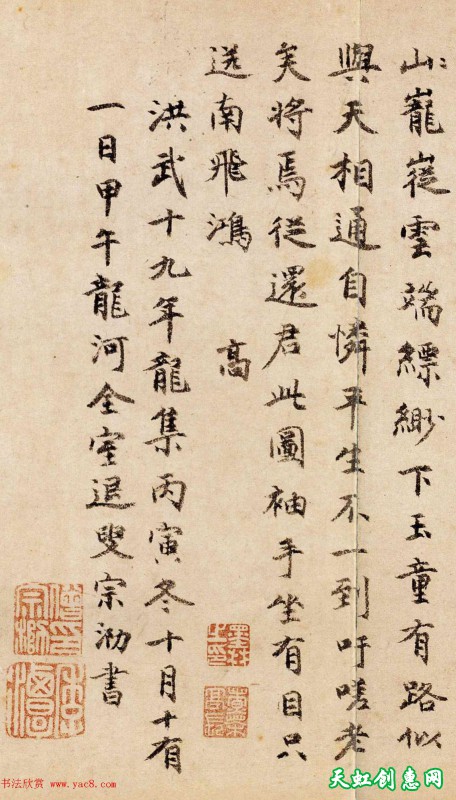 山〻巃嵸雲端縹緲下玉童有路似
與天相通自憐平生不一到吁嗟老
矣將焉從還君此圖袖手坐有目只
送南飛鴻 高
洪武十九年龍集丙寅冬十月十有
一日甲午龍河全室退叟宗泐書
书法欣赏 www.yac8.com
天虹创意网